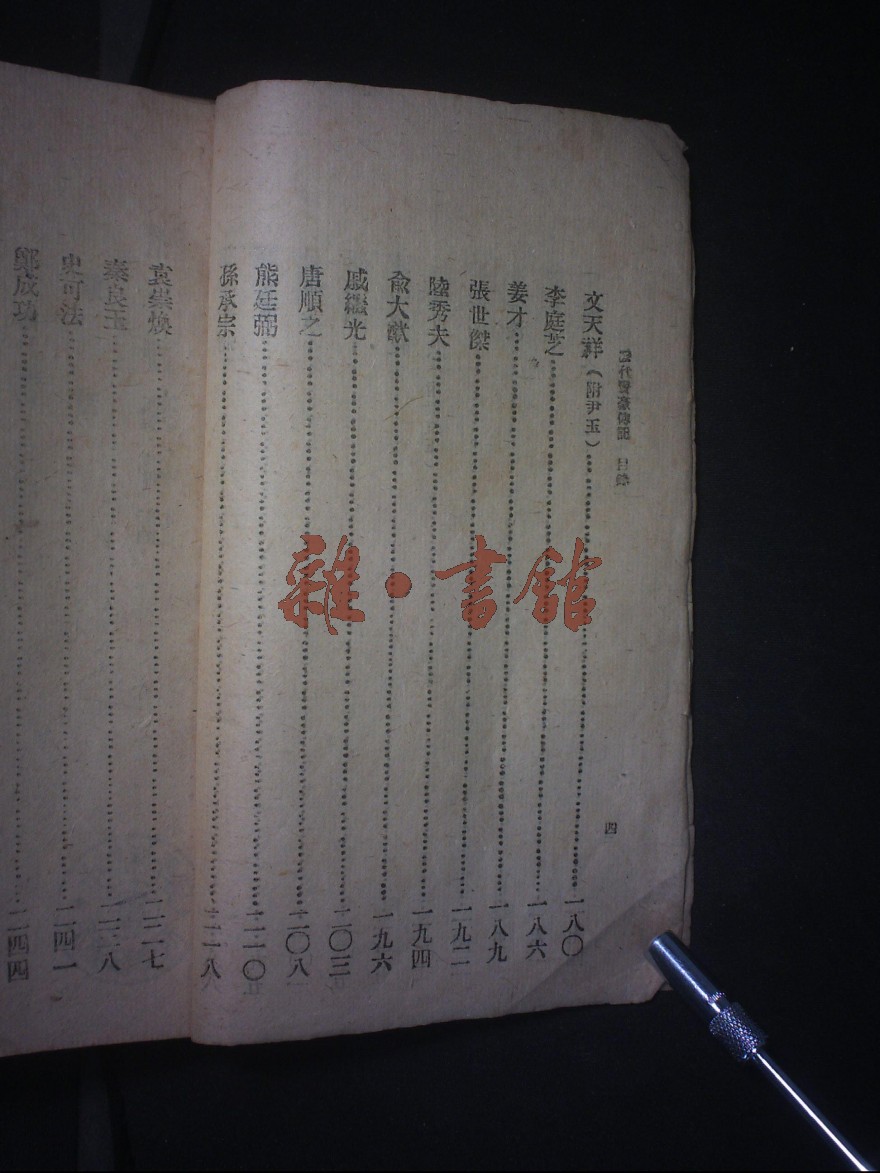 歷代賢豪傳記 目錄
四
文天祥（附尹玉）……一八〇
李庭芝……一八六
姜才……一八九
張世傑……一九二
陸秀夫……一九四
俞大猷……一九六
戚繼光……二〇三
唐順之……二〇八
熊廷弼……二一〇
孫承宗……二一八
袁崇煥……二二七
秦良玉……二三八
史可法……二四一
鄭成功……二四四
雜·書館